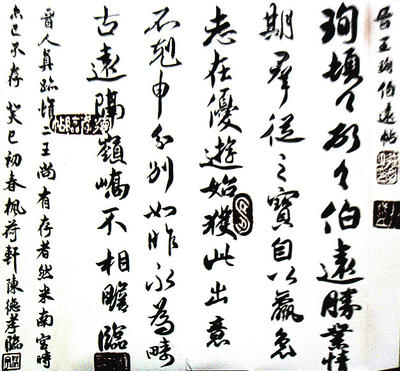 晉王珣伯遠帖
珣頓々首々伯遠勝業情
期羣從之寶自以羸患
志在優遊始獲此出意
不剋申分別如昨永為疇
古遠隔嶺嶠不相瞻臨
晉人真跡惟二王尚有存者然米南宮時
已不存 癸巳初春楓荷軒陳德孝臨